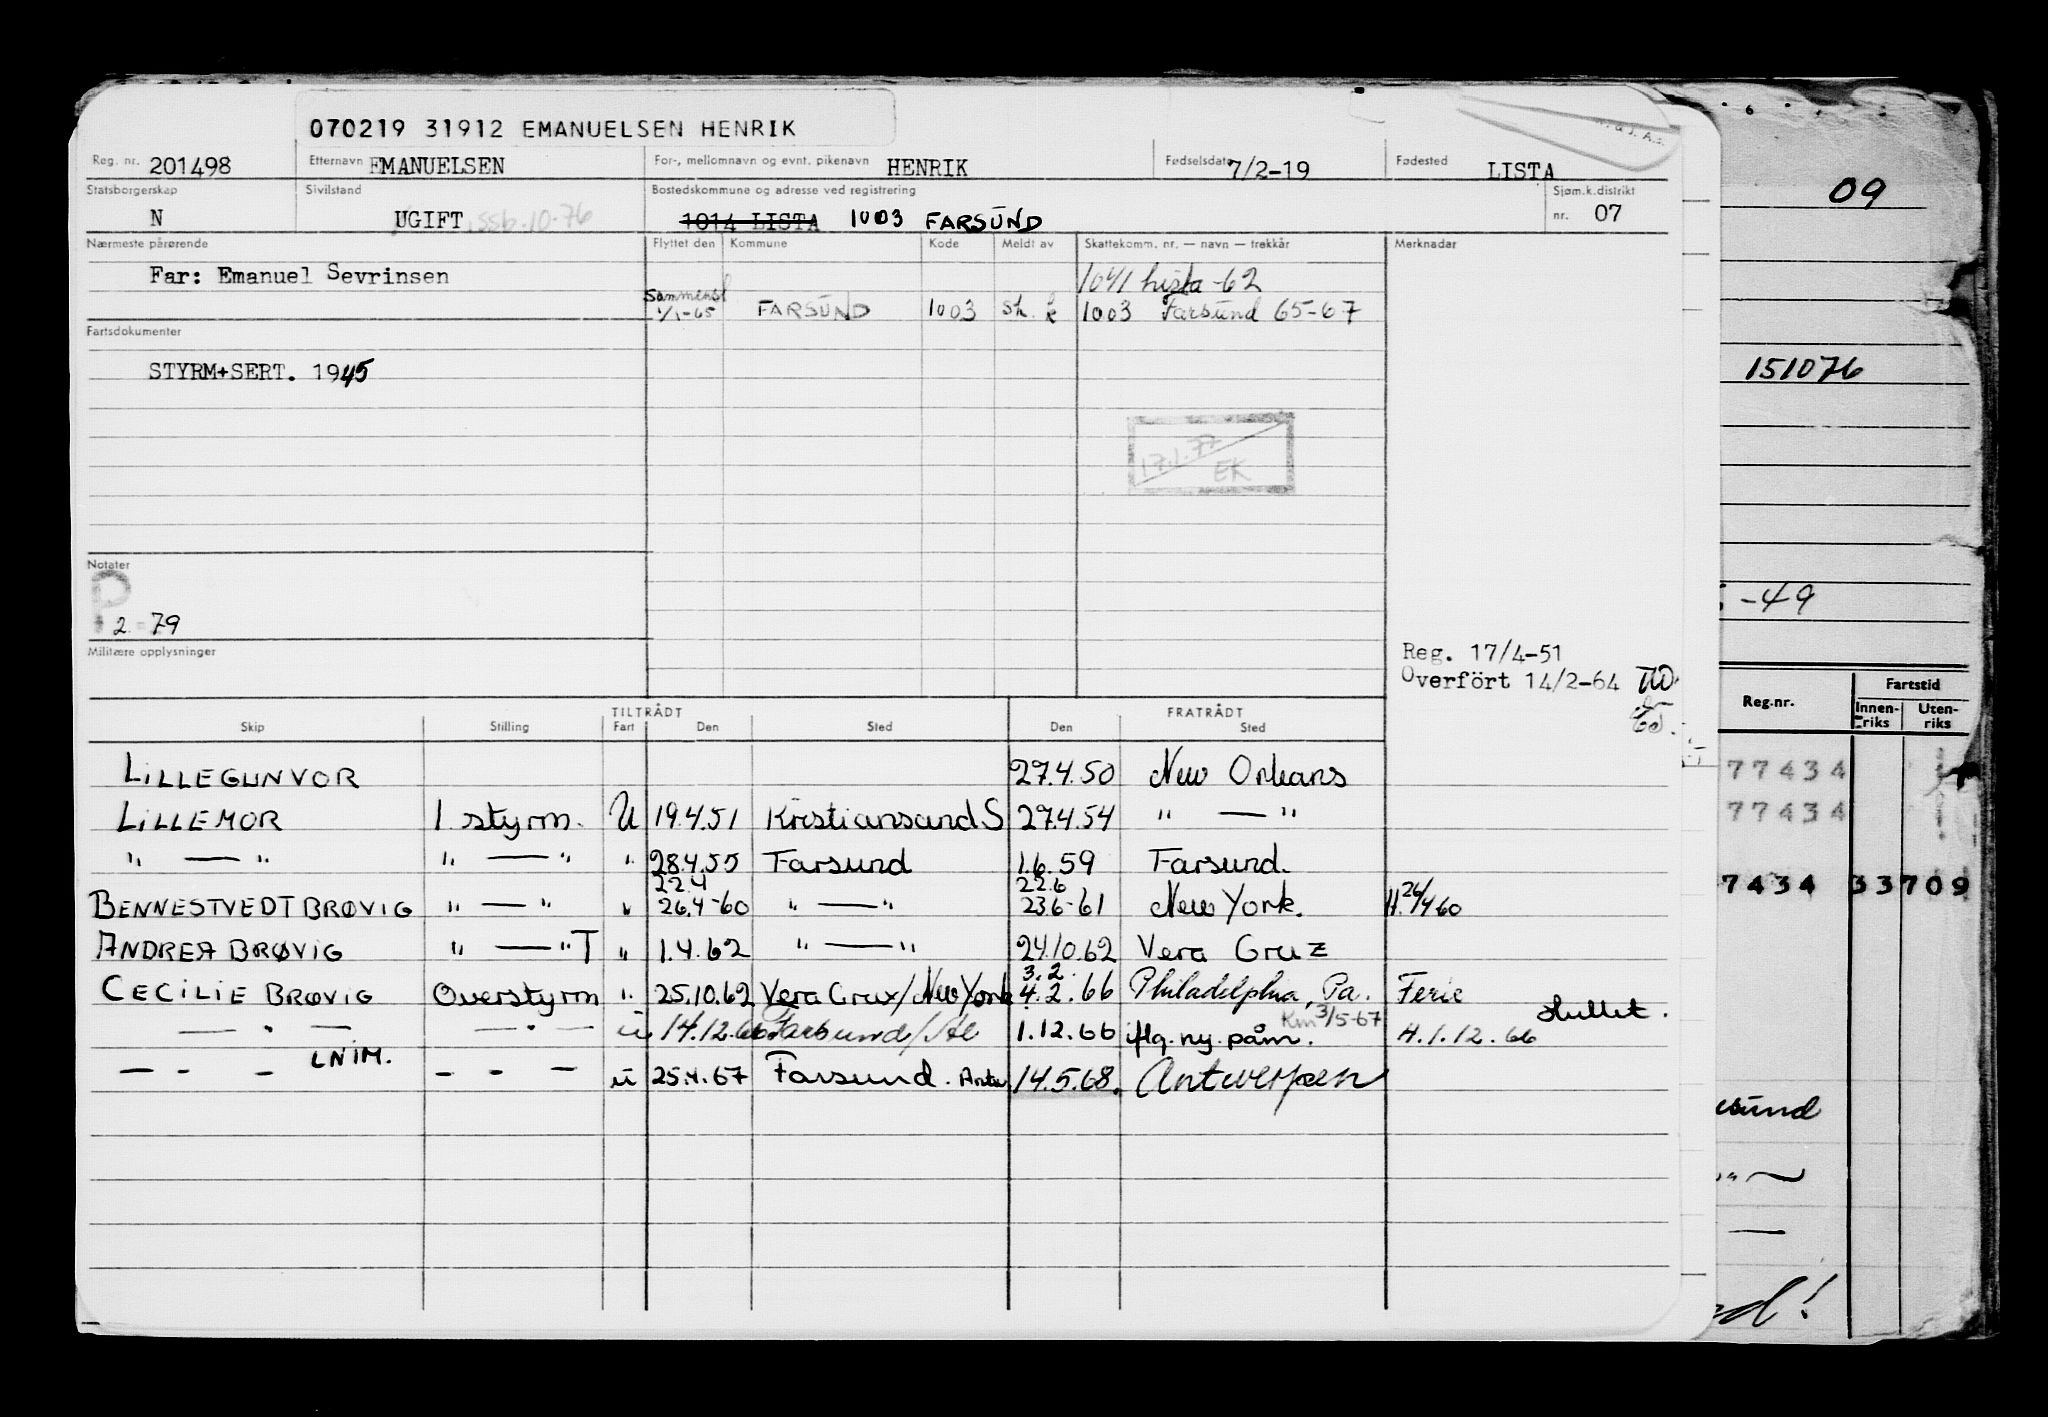 070219 31912 EMANUELSEN HENRIK
Reg. nr. 201498 Etternavn EMANUELSEN For-, mellomnavn og evnt. pikenavn HENRIK Fødselsdato 7/2-19 Fødested LISTA
Statsborgerskap Sivilstand Bostedskommune og adresse ved registrering Sjøm.k.distrikt
N UGIFT ssb.10-76 1014 LISTA 1003 FARSUND nr. 07
09
Nærmeste pårørende Flyttet den Kommune Kode Meldt av Skattekomm. nr. — navn — trekkår Merknadar
Far: Emanuel Sevrinsen 1041 Lista -62
Sammensl
1/1-65 FARSUND 1003 1003 Farsund 65-67
Fartsdokumenter
STYRM+SERT. 1945
151076
17.1.77
EK
Notater
P
2 - 79
-49
Militære opplysninger
Reg. 17/4-51
Overfört 14/2-64
TILTRÅDT FRATRÅDT
Skip Stilling Fart Den Sted Den Sted
Reg.nr. Fartstid
Innen-riks Uten-riks
LILLEGUNVOR 27.4.50 New Orleans
77434
LILLEMOR 1 styrm. U 19.4.51 Kristiansand S 27.4.54 " — "
77434
" — " " — " " 28.4.55 Farsund 1.6.59 Farsund.
7434 33709
22.4 22.6
BENNESTVEDT BRØVIG " — " " 26.4-60 " — " 23.6-61 New York. H.26/4 60
ANDREA BRØVIG " — " T " 1.4.62 " — " 24.10.62 Vera Cruz
3.2.
CECILIE BRØVIG Overstyrm " 25.10.62 Vera Cruz/New York 4.2.66 Philadelphia, Pa. Ferie
— " — — " — u 14.12.66 Farsund/ 1.12.66 iflg. ny. påm. 3/5-67 H.1.12.66 sluttet.
LNIM.
— - - — - - — u 25.4.67 Farsund. Antw 14.5.68. Antwerpen